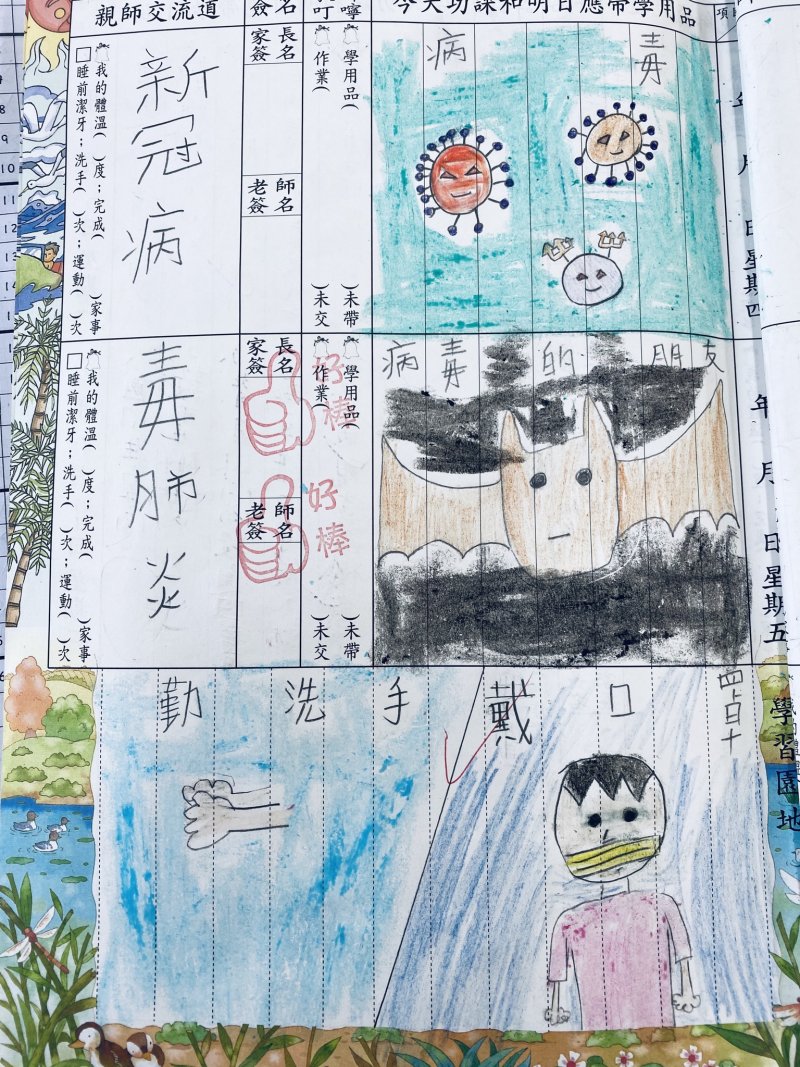 親師交流道
簽名
叮嚀
今天功課和明日應帶學用品
病毒
年 月 日星期四
學用品( )未帶
作業( )未交
家長簽名
老師簽名
新冠病
我的體溫( )度；完成( )家事
□睡前潔牙；洗手( )次；運動( )次
病毒的朋友
年 月 日星期五
學用品( )未帶
作業( )未交
家長簽名
老師簽名
好棒
好棒
毒肺炎
我的體溫( )度；完成( )家事
□睡前潔牙；洗手( )次；運動( )次
學習園地
勤洗手
戴口罩